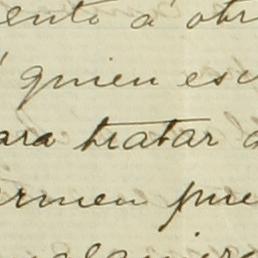 ento á otr
quien esc
ara tratar d
ermen pue